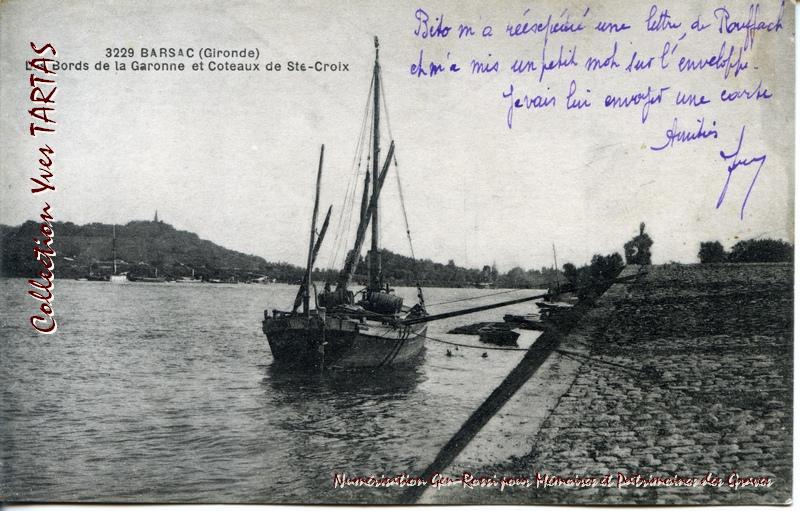 3229 BARSAC (Gironde)
Bords de la Garonne et Coteaux de Ste-Croix
Bito m'a réexpédié une lettre de Rouffach
et m'a mis un petit mot sur l'enveloppe.
J'avais lui envoyer une carte
Amitiés
Collection Yves TARTAS
Numérisation Geo-Rossi pour Mémoires et Patrimoines des Graves